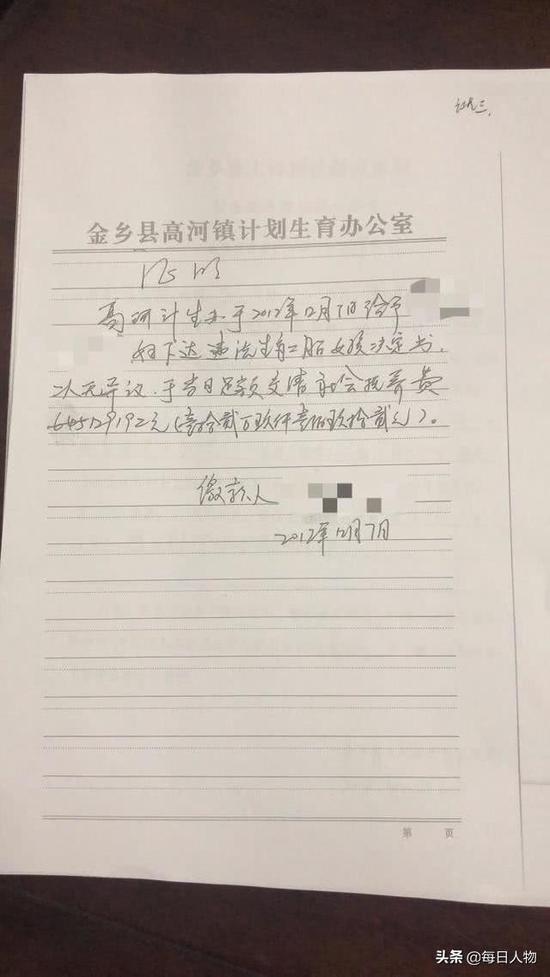 证据三.
金乡县高河镇计划生育办公室
证明
高河计生办于2012年12月7日给予
妇下达违法生育二胎女孩决定书,
二人无异议.于当日足额交清社会抚养费
129192元(壹拾贰万玖仟壹佰玖拾贰元)。
缴款人
2012年12月7日
第 页
头条 @每日人物